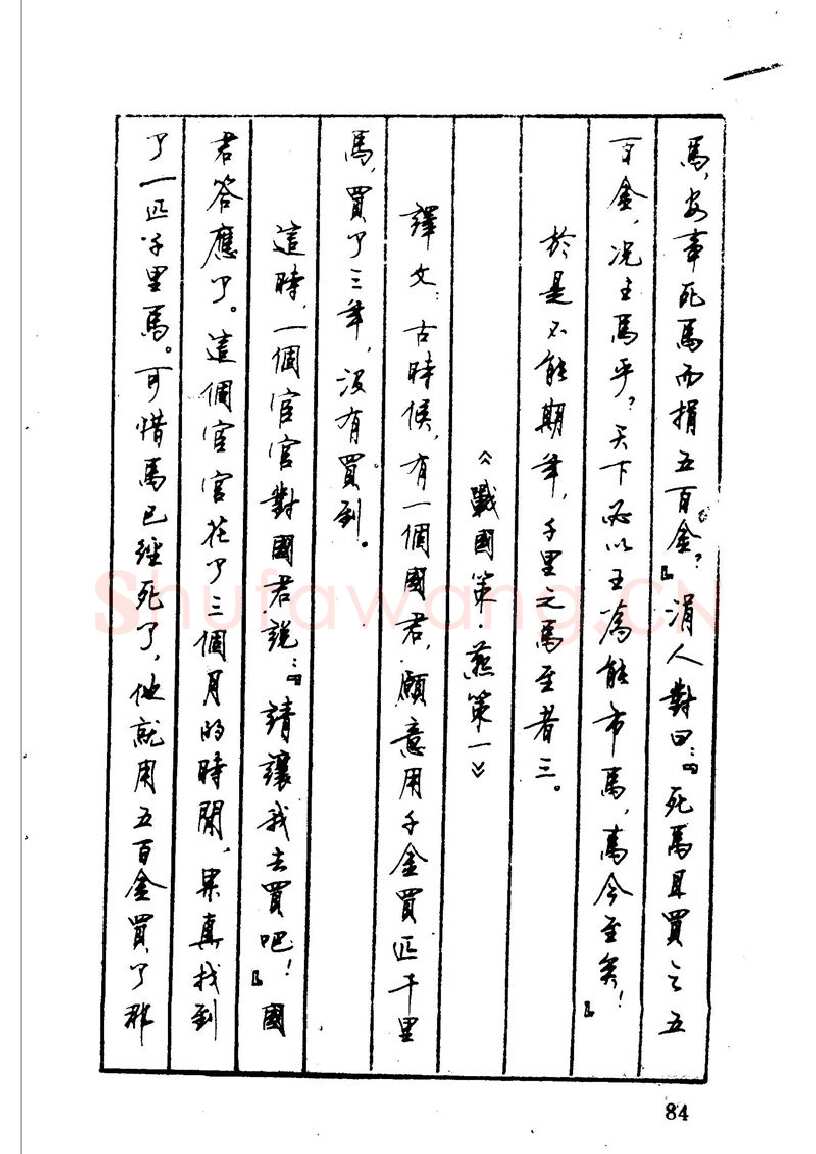 馬，安事死馬而捐五百金？』涓人對曰：『死馬且買之五
百金，況生馬乎？天下必以王為能市馬，馬今至矣！』
於是不能期年，千里之馬至者三。
《戰國策 燕策一》
譯文：古時候，有一個國君，願意用千金買匹千里
馬，買了三年，沒有買到。
這時，一個宦官對國君說：『請讓我去買吧！』國
君答應了。這個宦官花了三個月的時間，果真找到
了一匹千里馬。可惜馬已經死了，他就用五百金買了那
84
Shufawang.CN